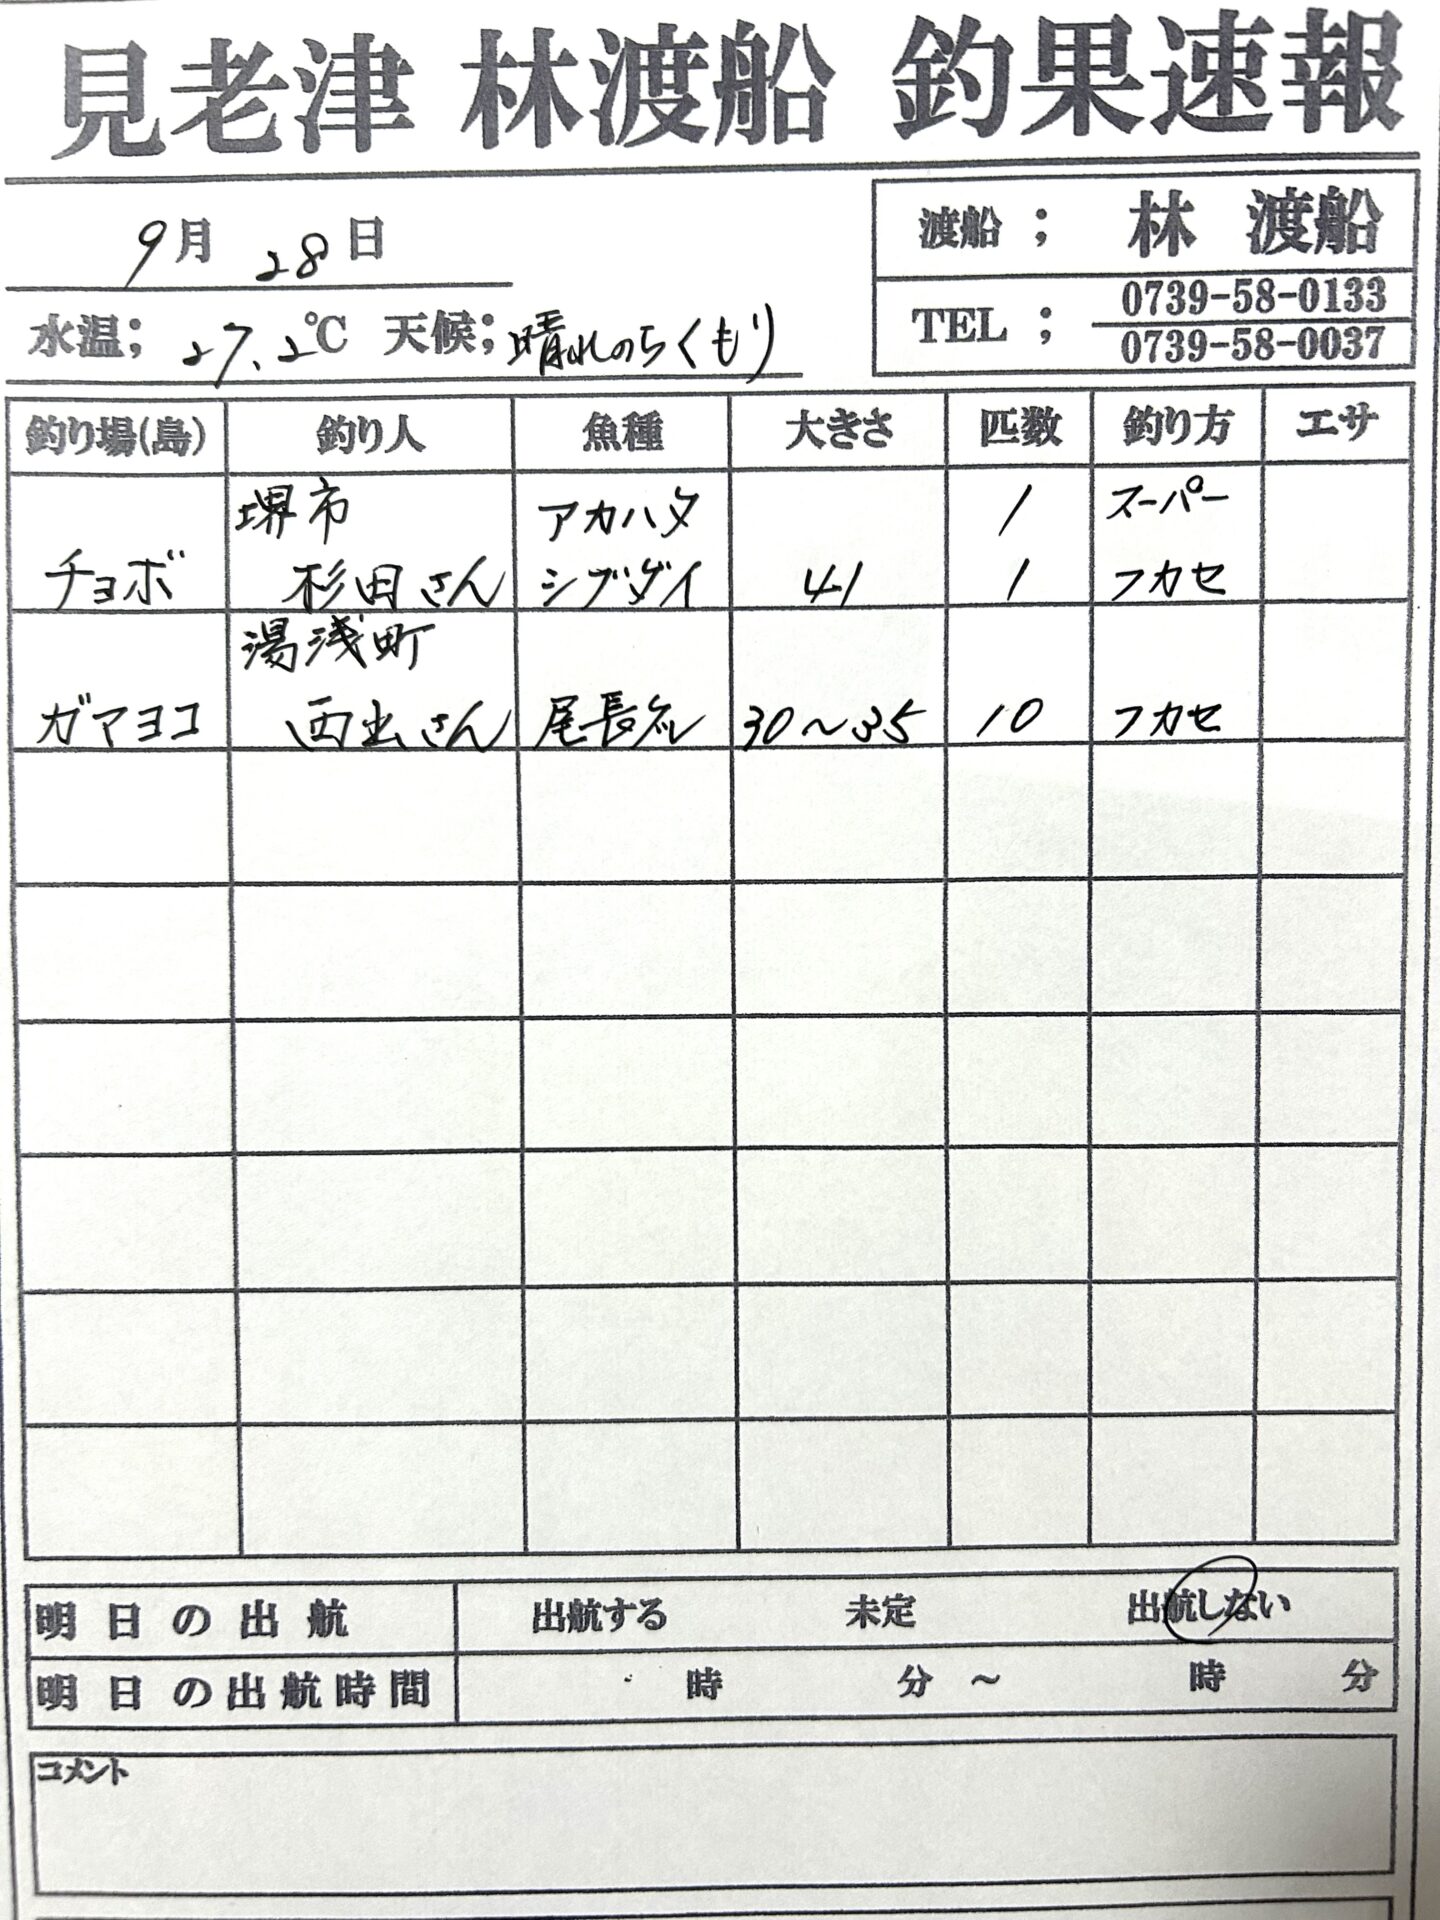 見老津 林渡船 釣果速報
9月 28日
渡船 ; 林 渡船
水温; 27.2℃ 天候; 晴れのちくもり
TEL ; 0739-58-0133
0739-58-0037
釣り場(島) 釣り人 魚種 大きさ 匹数 釣り方 エサ
堺市 アカハタ 1 スーパー
チョボ 杉田さん シブダイ 41 1 フカセ
湯浅町
ガマヨコ 西出さん 尾長グレ 30〜35 10 フカセ
明日の出航 出航する 未定 出航しない
明日の出航時間 時 分 〜 時 分
コメント